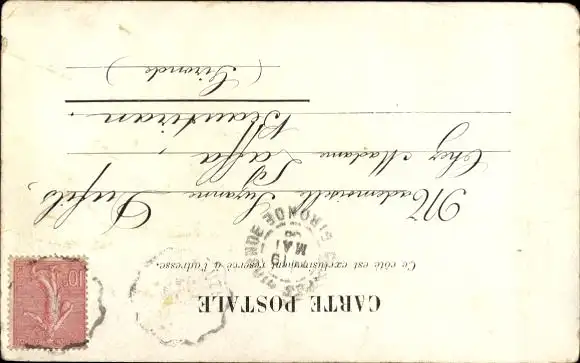 CARTE POSTALE
Ce côté est exclusivement réservé à l'adresse.
Mademoiselle Suzanne Dufils,
Chez Madame Laffa,
Beautiran.
(Gironde)
10
GIRONDE
19
MAI